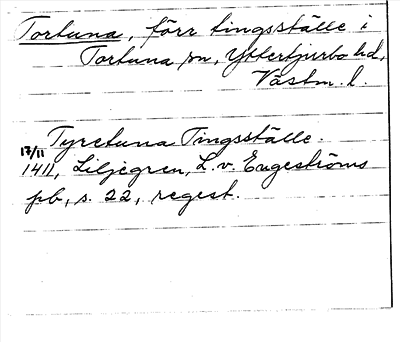 Tortuna, förr tingsställe i
Tortuna sn, Yttertjurbo hd,
Västm. l.
Tyretuna Tingsställe.
17/11 1411, Liljegren, L. v. Engeströms
pb, s. 22, regest.